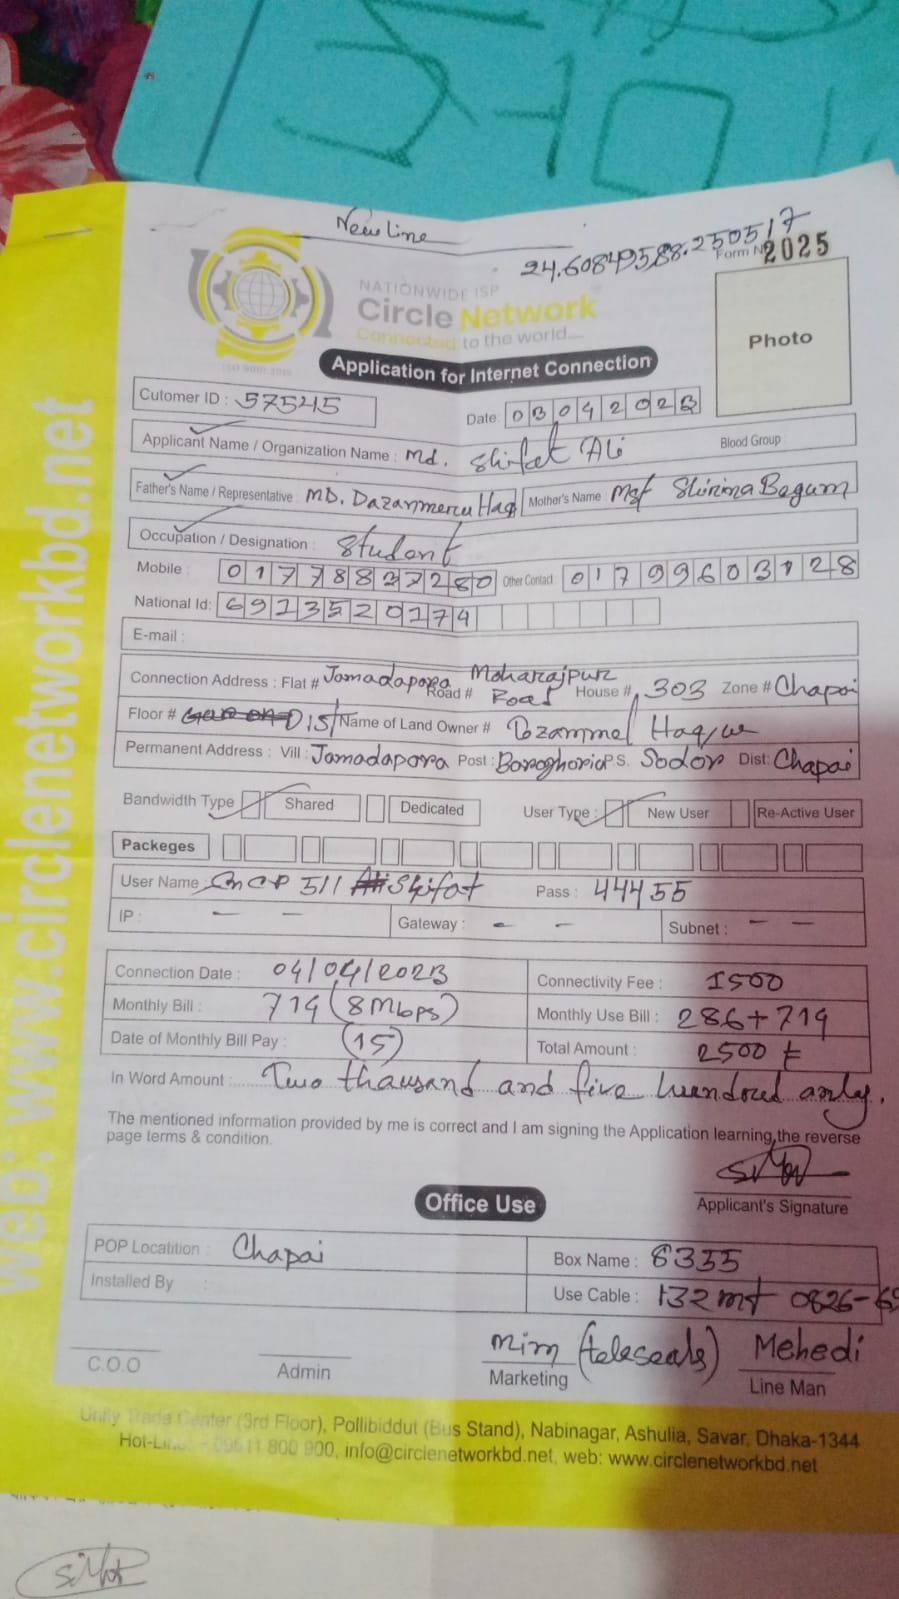 New Line
24.6084958,88.250517
Form No 2025
NATIONWIDE ISP
Circle Network
Connected to the world....
ISO 9001:2015
Application for Internet Connection
Photo
Cutomer ID : 57545
Date: 03042023
Applicant Name / Organization Name : Md. Shifat Ali
Blood Group
Father's Name / Representative : MD. Dazammercu Haq
Mother's Name Mst Shirina Begum
Occupation / Designation : Student
Mobile : 01778837280 Other Contact : 01799603128
National Id: 6913520174
E-mail :
Connection Address : Flat # Jamadapara Road # Moharajpur Road House # 303 Zone # Chapai
Floor # Dist Name of Land Owner # Dozammel Haque
Permanent Address : Vill : Jamadapara Post : Baroghoria P.S. Sodor Dist: Chapai
Bandwidth Type Shared Dedicated User Type : New User Re-Active User
Packeges
User Name : CnCP 511 Shifat Pass : 44455
IP : - - Gateway : - - Subnet : - -
Connection Date : 04/04/2023 Connectivity Fee : 1500
Monthly Bill : 714 (8Mbps) Monthly Use Bill : 286+714
Date of Monthly Bill Pay : (15) Total Amount : 2500 ৳
In Word Amount : Two thausand and five hundred only.
The mentioned information provided by me is correct and I am signing the Application learning,the reverse
page terms & condition.
Applicant's Signature
Office Use
POP Localtition : Chapai Box Name : 6335
Installed By : Use Cable : 132mt 0826-
C.O.O
Admin
Mim (teleseals)
Marketing
Mehedi
Line Man
Unity Trade Center (3rd Floor), Pollibiddut (Bus Stand), Nabinagar, Ashulia, Savar, Dhaka-1344
Hot-Line: 09611 800 900, info@circlenetworkbd.net, web: www.circlenetworkbd.net
web: www.circlenetworkbd.net